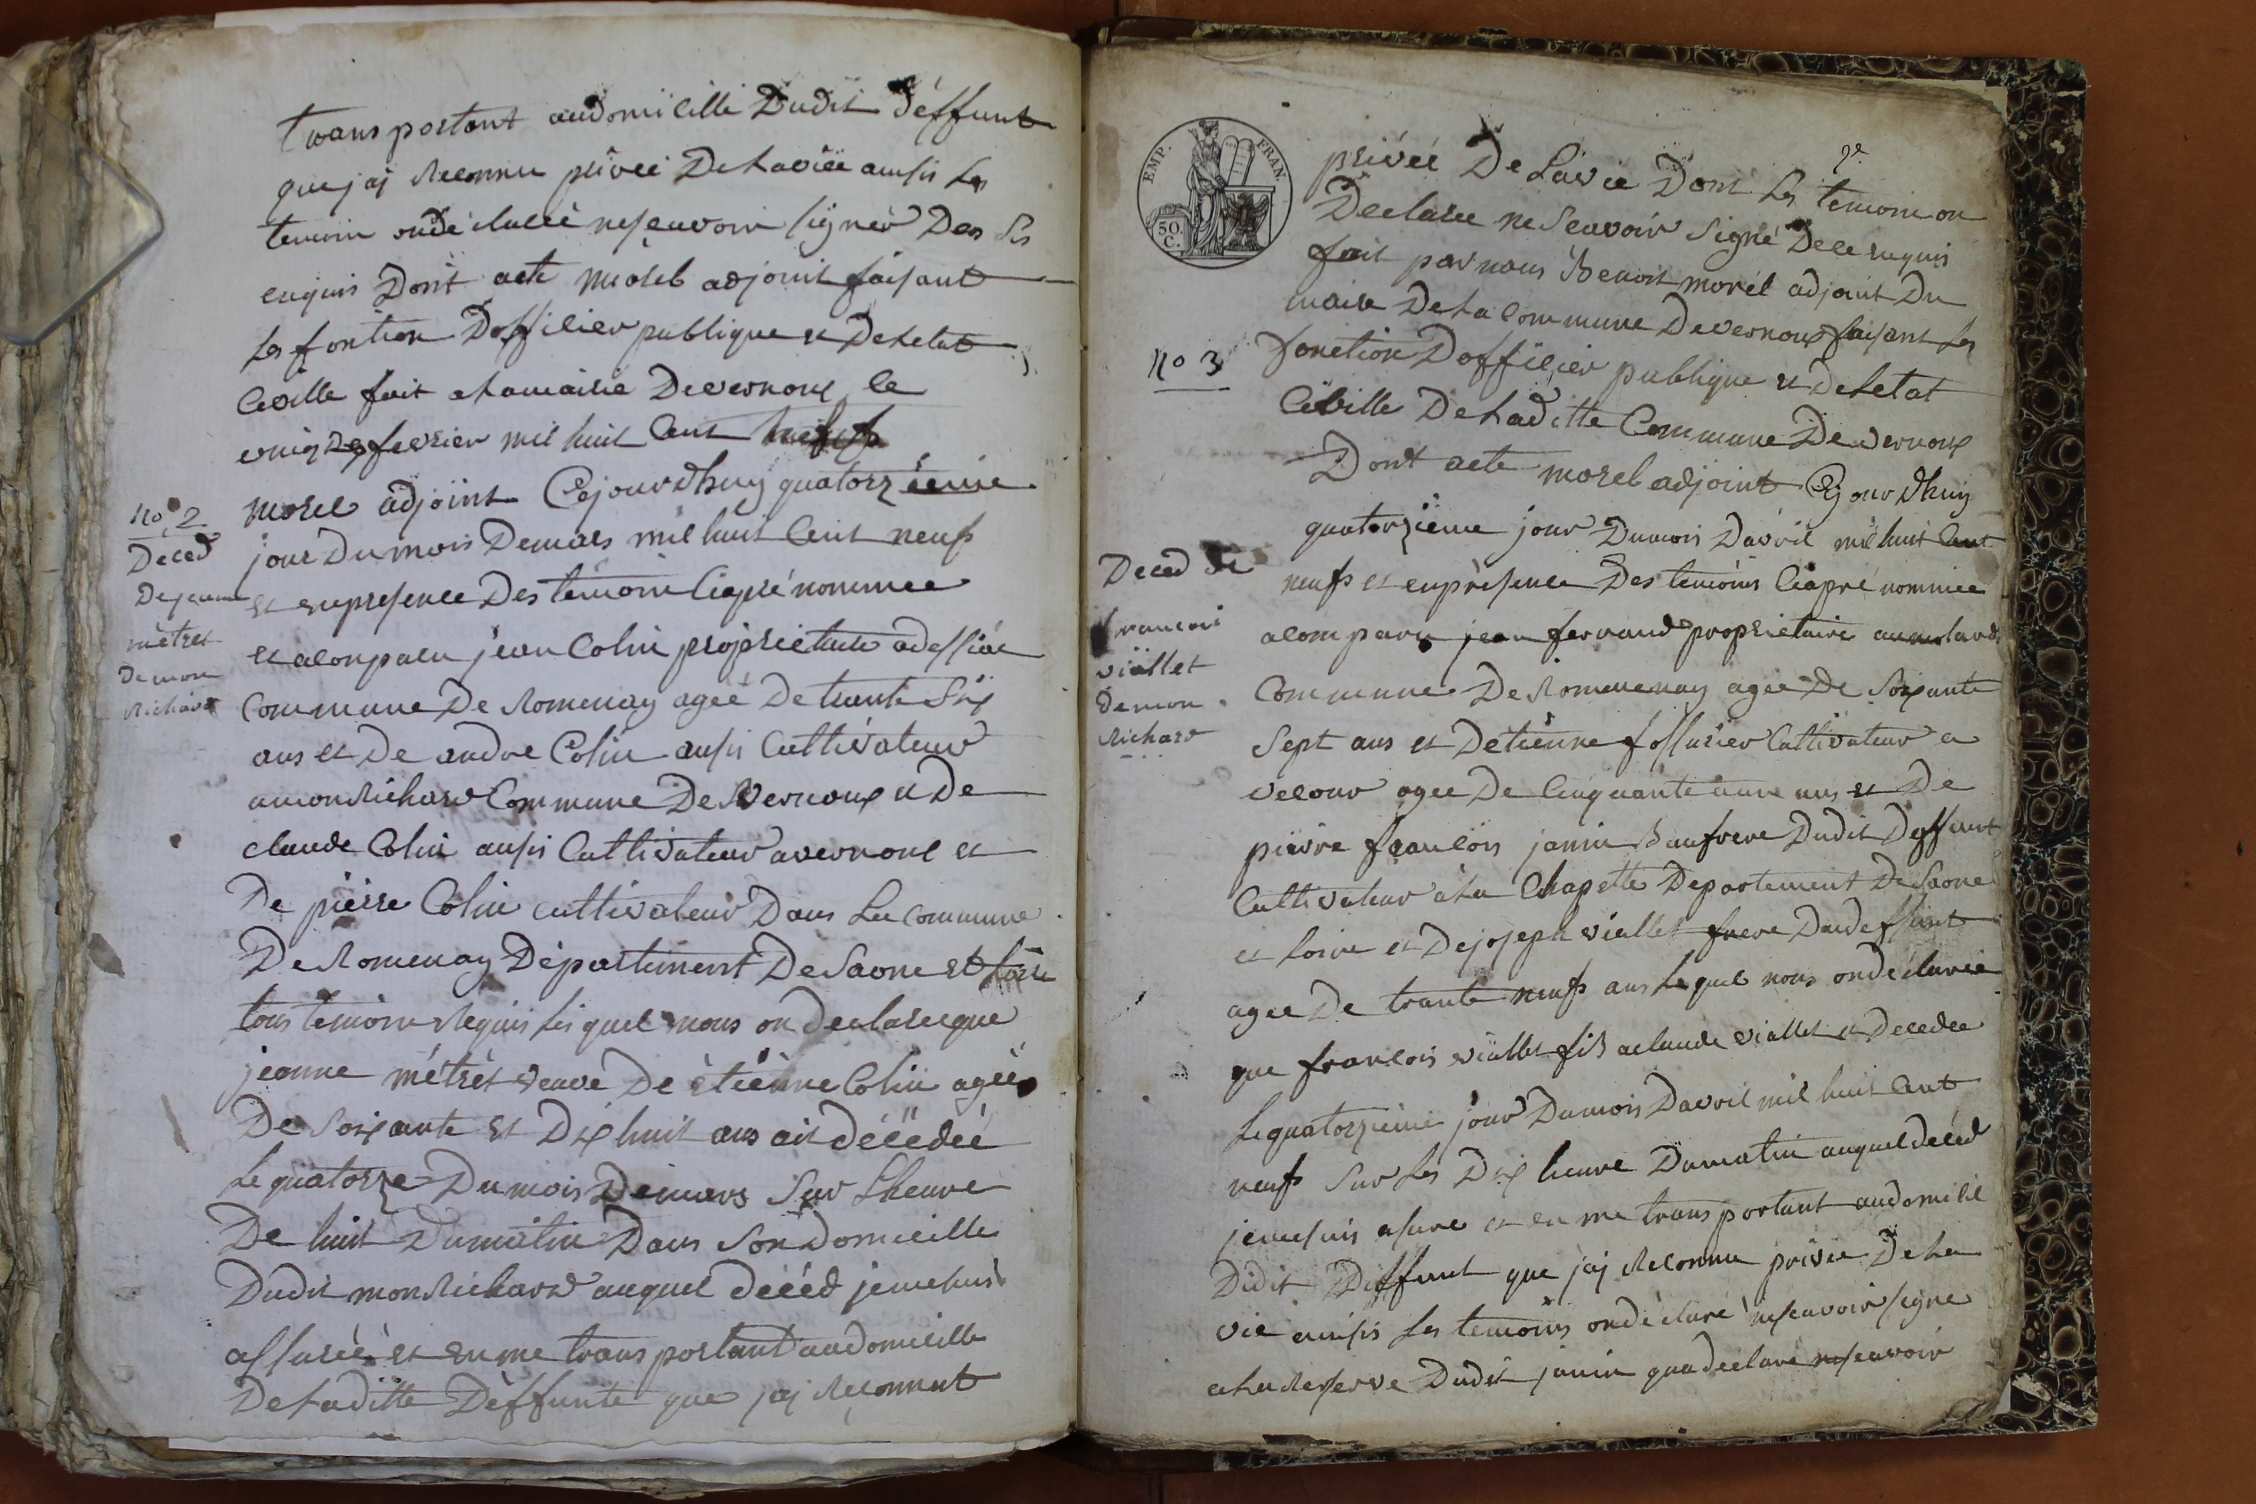 transportant audomicille Dudit déffunt
que jaj Reconnu privée Delaviee ainsis Les
temoin ondéclareé neseavoir signér Dan Sis
enquis Dont acte morel adjoint faisant
Les fontion Dofficier publique et Deletat
Civille fait alamairie Devernoux le
vingt fevrier mil huit Cent
morel adjoint Cejourdhuy quatorzieme
jour Dumois Demars mil huit Cent neufs
et enpresence Des témoin Ciaprénommee
et acomparu jean Colin proprietaire
Commune De Romenay ageé Detrante Six
ans et De andre Colin ausis Cultivateur
amonRichard Commune DeVernoux et De
claude Colin ausis Cultivateur avernoux et
De pierre Colin cultivateur Dans La commune
DeRomenay Département DeSaone et Loire
tous temoin Requis Lesquel nous on declareeque
jeanne métret veave De étiènne Colin ageé
De Soixante Et Dix huit ans ait décédeé
Le quatorze Du mois Demars Sur Lheure
De huit Dumatin Dans Son Domicille
Dudit monRichard auquel décéd jemesuis
assureé et en me transportant audomicille
Deladitte Déffunte que jaj Reconnut
no 2
Deced
Dejeanne
métret
demon
Richard
EMP. FRAN.
50.
C.
2e
privée De Lavie Dont Les temoin on
Declaree neSeavoir Signé Dece enquis
fait parnous Benoit morel adjoint Du
maire Dela Commune Devernoux faisant Les
no 3
fonction Dofficier publique et Deletat
Civille Deladitte Commune Devernoux
Dont acte morel adjoint Cejourdhuy
quatorzieme jour Dumois Davril mil huit Cent
Deced de
francois
viallet
demon
Richard
neufs et enprésence Des temoins Ciaprénommee
acomparu jean ferrand proprietaire
Commune De Romenay agee De Soixante
Sept ans et Detienne fossurier Cultivateur a
velour agee De Cinquante une ans et De
pierre francois janin Beaufrere Dudit Deffunt
Cultivateur ala Chapelle Departement DeSaone
et Loire et Dejoseph viallet frere Dudeffunt
agee De trante neufs ans Lequel nous ondéclareé
que francois viallet fils aclaude viallet et Decedee
Lequatorzieme jour Dumois Davril mil huit Cent
neufs Sur Les Dix heure Dumatin auquel decéd
jemesuis asure et en me transportant audomicil
Dudit Déffunt que jaj Reconnu privée Dela
vie ainsis Les temoins ondéclaré neseavoir signe
alaReserve Dudit janin quadeclare neseavoir